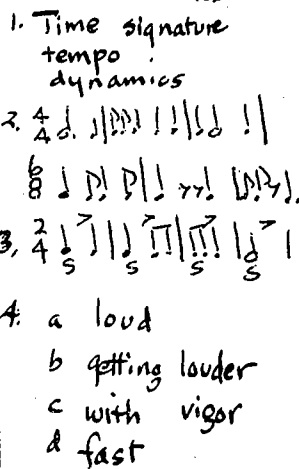 1. Time signature
tempo
dynamics
2. 4 4
6 8
3, 2 4
S S S S
4. a loud
b getting louder
c with vigor
d fast